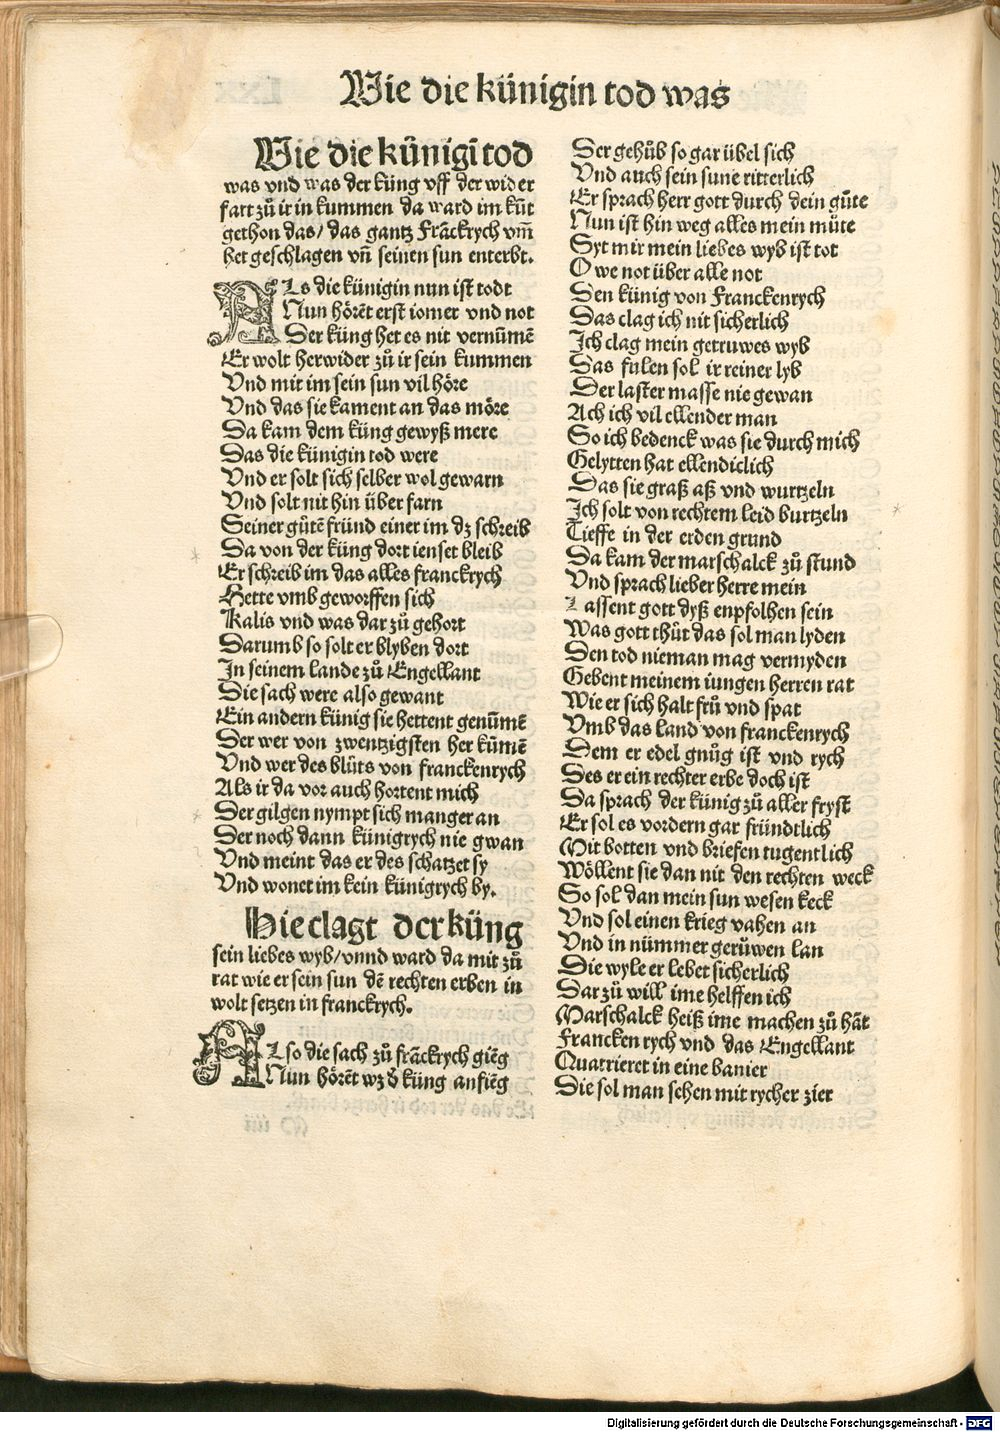 Wie die künigin tod was
Wie die kůnigī tod
was vnd was der küng vff der wider
fart zů ir in kummen da ward im kůt
gethon das/ das gantz Frāckrych vm̄
het geschlagen vn̄ seinen sun enterbt.
ALs die künigin nun ist todt
Nun hörēt erst iomer vnd not
Der küng het es nit vernūmē
Er wolt herwider zů ir sein kummen
Vnd mit im sein sun vil höre
Vnd das sie kament an das möre
Da kam dem küng gewyß mere
Das die künigin tod were
Vnd er solt sich selber wol gewarn
Vnd solt nit hin über farn
Seiner gůtē fründ einer im dz schreib
Da von der küng dort ienset bleib
Er schreib im das alles franckrych
Hette vmb geworffen sich
Kalis vnd was dar zů gehort
Darumb so solt er blyben dort
In seinem lande zů Engellant
Die sach were also gewant
Ein andern künig sie hettent genūmē
Der wer von zwentzigsten her kūmē
Vnd wer des blůts von franckenrych
Als ir da vor auch hortent mich
Der gilgen nympt sich manger an
Der noch dann künigrych nie gwan
Vnd meint das er des schatzet sy
Vnd wonet im kein künigrych by.
Hie clagt der küng
sein liebes wyb/vnnd ward da mit zů
rat wie er sein sun dē rechten erben in
wolt setzen in franckrych.
ALso die sach zů frāckrych giēg
Nun hörēt wz d̄ küng anfiēg
Der gehůb so gar übel sich
Vnd auch sein sune ritterlich
Er sprach herr gott durch dein gůte
Nun ist hin weg alles mein můte
Syt mir mein liebes wyb ist tot
O we not über alle not
Den künig von Franckenrych
Das clag ich nit sicherlich
Ich clag mein getruwes wyb
Das fulen sol ir reiner lyb
Der laster masse nie gewan
Ach ich vil ellender man
So ich bedenck was sie durch mich
Gelytten hat ellendiclich
Das sie graß aß vnd wurtzeln
Ich solt von rechtem leid burtzeln
Tieffe in der erden grund
Da kam der marschalck zů stund
Vnd sprach lieber herre mein
Lassent gott dyß enpfolhen sein
Was gott thůt das sol man lyden
Den tod nieman mag vermyden
Gebent meinem iungen herren rat
Wie er sich halt frů vnd spat
Vmb das land von franckenrych
Dem er edel gnůg ist vnd rych
Des er ein rechter erbe doch ist
Da sprach der künig zů aller fryst
Er sol es vordern gar fründtlich
Mit botten vnd briefen tugentlich
Wöllent sie dan nit den rechten weck
So sol dan mein sun wesen keck
Vnd sol einen krieg vahen an
Vnd in nümmer gerůwen lan
Die wyle er lebet sicherlich
Dar zů will ime helffen ich
Marschalck heiß ime machen zů hāt
Francken rych vnd das Engellant
Quatrieret in eine banier
Die sol man sehen mit rycher zier
Digitalisierung gefördert durch die Deutsche Forschungsgemeinschaft - DFG